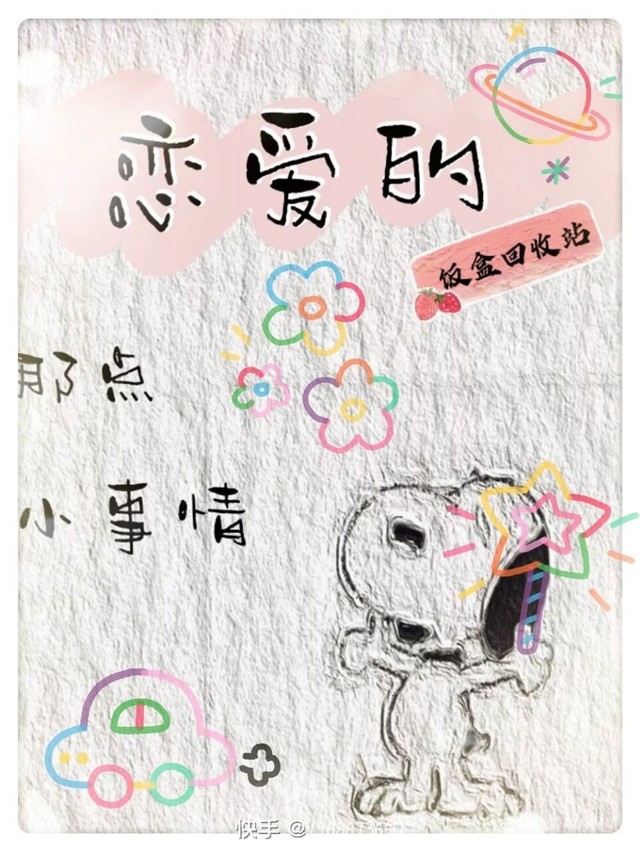 恋爱的
饭盒回收站
那点
小事情
快手 @